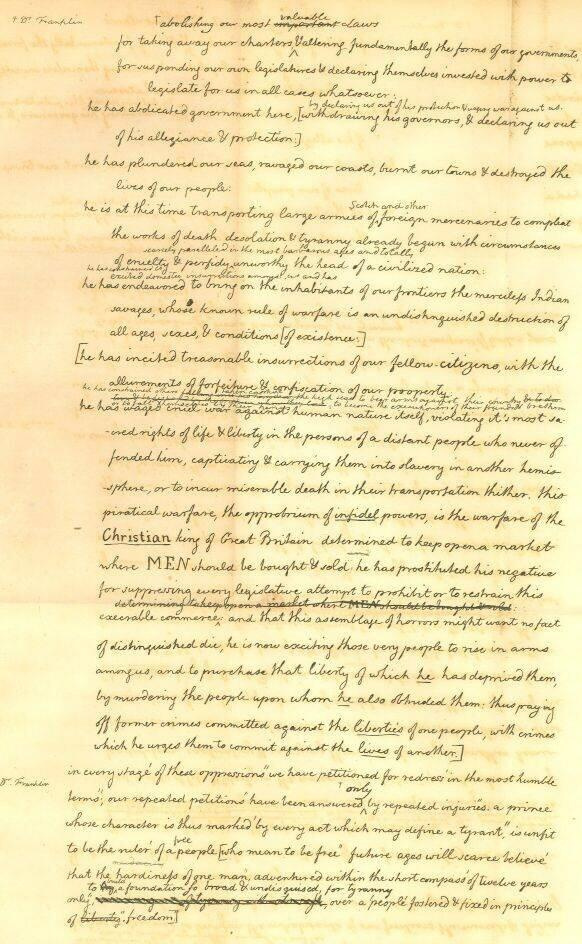 * Dr. Franklin
abolishing our most important valuable Laws
for taking away our charters & altering fundamentally the forms of our governments,
for suspending our own legislatures & declaring themselves invested with power to
legislate for us in all cases whatsoever:
by declaring us out of his protection & waging war against us.
he has abdicated government here, [withdrawing his governors, & declaring us out
of his allegiance & protection:]
he has plundered our seas, ravaged our coasts, burnt our towns & destroyed the
lives of our people:
Scotch and other
he is at this time transporting large armies of foreign mercenaries to compleat
the works of death desolation & tyranny already begun with circumstances
scarcely paralleled in the most barbarous ages and totally
of cruelty & perfidy unworthy the head of a civilized nation:
excited domestic insurrections amongst us and has
he has endeavored to bring on the inhabitants of our frontiers the merciless Indian
savages, whose known rule of warfare is an undistinguished destruction of
all ages, sexes, & conditions [of existence:]
[he has incited treasonable insurrections of our fellow-citizens, with the
allurements of forfeiture & confiscation of our property:
he has constrained others taken captives on the high seas to bear arms against their country
to become the executioners of their friends & brethren
he has waged cruel war against human nature itself, violating it's most sa-
-cred rights of life & liberty in the persons of a distant people who never of-
fended him, captivating & carrying them into slavery in another hemis-
-sphere, or to incur miserable death in their transportation thither. this
piratical warfare, the opprobrium of infidel powers, is the warfare of the
Christian king of Great Britain determined to keep open a market
where MEN should be bought & sold he has prostituted his negative
for suppressing every legislative attempt to prohibit or to restrain this
determining to keep open a market where MEN should be bought & sold:
execrable commerce: and that this assemblage of horrors might want no fact
of distinguished die, he is now exciting those very people to rise in arms
among us, and to purchase that liberty of which he has deprived them,
by murdering the people upon whom he also obtruded them: thus paying
off former crimes committed against the liberties of one people, with crimes
which he urges them to commit against the lives of another.]
in every stage of these oppressions we have petitioned for redress in the most humble
Dr. Franklin
only
terms; our repeated petitions have been answered by repeated injuries. a prince
whose character is thus marked by every act which may define a tyrant, is unfit
free
to be the ruler of a people [who mean to be free. future ages will scarce believe
that the hardiness of one man, adventured within the short compass of twelve years
to build a foundation so broad & undisguised, for tyranny
only, over a people fostered & fixed in principles
of liberty. freedom]